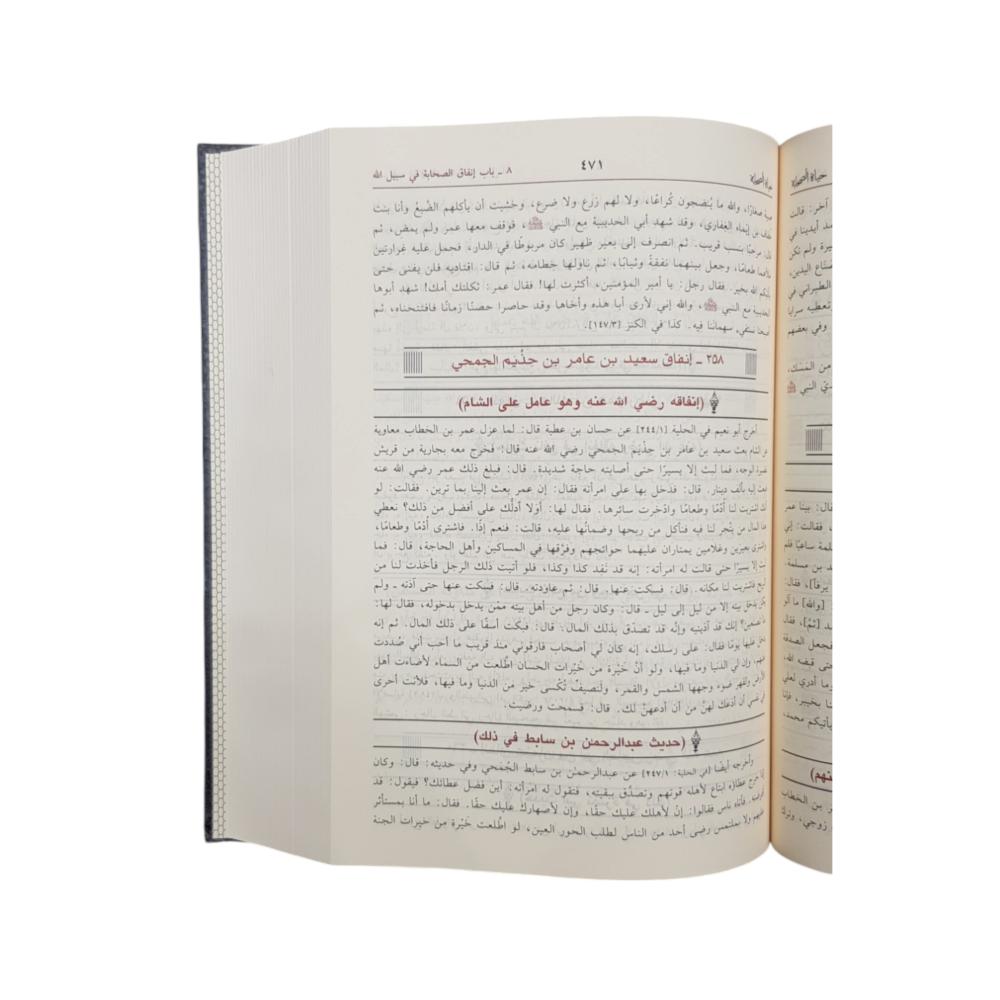 حياة الصحابة ٤٧١ ٨ ـ باب إنفاق الصحابة في سبيل الله
صبية صغارًا، والله ما يُنضجون كُراعًا، ولا لهم زرع ولا ضرع، وخشيت أن يأكلهم الضَّبُعُ وأنا بنت
خُفاف بن إيْماء الغِفاري، وقد شهد أبي الحديبية مع النبي ﷺ، فوَقف معها عمر ولم يمض، ثم
قال: مرحبًا بنسب قريب. ثم انصرف إلى بعيْر ظهير كان مربوطًا في الدار، فحمل عليه غِرارتين
ملأهما طعامًا، وجعل بينهما نفقةً وثيابًا، ثم ناوَلها خِطامه، ثم قال: اقتاديه فلن يفنى حتى
يأتيكم الله بخير. فقال رجل: يا أمير المؤمنين، أكثرت لها! فقال عمر: ثكلتك أمك! شهد أبوها
الحديبية مع النبي ﷺ، والله إني لأرى أبا هذه وأخاها وقد حاصرا حصنًا زمانًا فافتتحناه، ثم
أصبحنا نستفيء سهماننا فيه. كذا في الكنز [١٤٧/٣].
٢٥٨ ـ إنفاق سعيد بن عامر بن حِذْيَم الجمحي
(إنفاقه رضي الله عنه وهو عامل على الشام)
أخرج أبو نعيم في الحلية [٢٤٤/١] عن حسان بن عطية قال: لما عزل عمر بن الخطاب معاوية
عن الشام بعث سعيد بن عامر بن حِذْيَم الجمحي رضي الله عنه قال: فخرج معه بجارية من قريش
نضيرة الوجه، فما لبث إلا يسيرًا حتى أصابته حاجة شديدة. قال: فبلغ ذلك عمر رضي الله عنه
فبعث إليه بألف دينار. قال: فدخل بها على امرأته فقال: إن عمر بعث إلينا بما ترين. فقالت: لو
أنك اشتريت لنا أُدْمًا وطعامًا وادّخرت سائرها. فقال لها: أوَلا أدلُّك على أفضل من ذلك؟ نعطي
هذا المال من يتَّجر لنا فيه فنأكل من ربحها وضمانُها عليه، قالت: فنعم إذًا. فاشترى أُدْمًا وطعامًا،
واشترى بعيرين وغلامين يمتاران عليهما حوائجهم وفرَّقها في المساكين وأهل الحاجة، قال: فما
لبث إلا يسيرًا حتى قالت له امرأته: إنه قد نَفِد كذا وكذا، فلو أتيت ذلك الرجل فأخذت لنا من
الربح فاشتريت لنا مكانه. قال: فسكت عنها. قال: ثم عاودته. قال: فسكت عنها حتى آذته ـ ولم
يكن يدخل بيته إلا من ليل إلى ليل ـ قال: وكان رجل من أهل بيته ممّن يدخل بدخوله، فقال لها:
ما تصنعين؟ إنك قد آذيتيه وإنَّه قد تصدَّق بذلك المال. قال: فبكت أسفًا على ذلك المال. ثم إنه
دخل عليها يومًا فقال: على رسلك، إنه كان لي أصحاب فارقوني منذ قريب ما أحب أني صُددت
عنهم، وإن لي الدنيا وما فيها، ولو أنَّ خَيْرة من خَيْرات الحسان اطَّلعت من السماء لأضاءت أهل
الأرض ولقهر ضوء وجهها الشمس والقمر، ولَنَصيفٌ تُكْسى خير من الدنيا وما فيها، فلأنت أحرى
في نفسي أن أدعك لهنّ من أن أدعهنَّ لك. قال: فسمحت ورضيت.
(حديث عبدالرحمٰن بن سابط في ذلك)
وأخرجه أيضًا [في الحلية: ٢٤٧/١] عن عبدالرحمٰن بن سابط الجُمحي وفي حديثه: قال: وكان
إذا خرج عطاؤه ابتاع لأهله قوتهم وتصدَّق ببقيته، فتقول له امرأته: أين فضل عطائك؟ فيقول: قد
أقرضته. فأتاه ناس فقالوا: إنّ لأهلك عليك حقًا، وإن لأصهارك عليك حقًا. فقال: ما أنا بمستأثر
عليهم ولا بملتمس رضى أحد من الناس لطلب الحور العين، لو اطَّلعت خَيْرة من خيرات الجنة